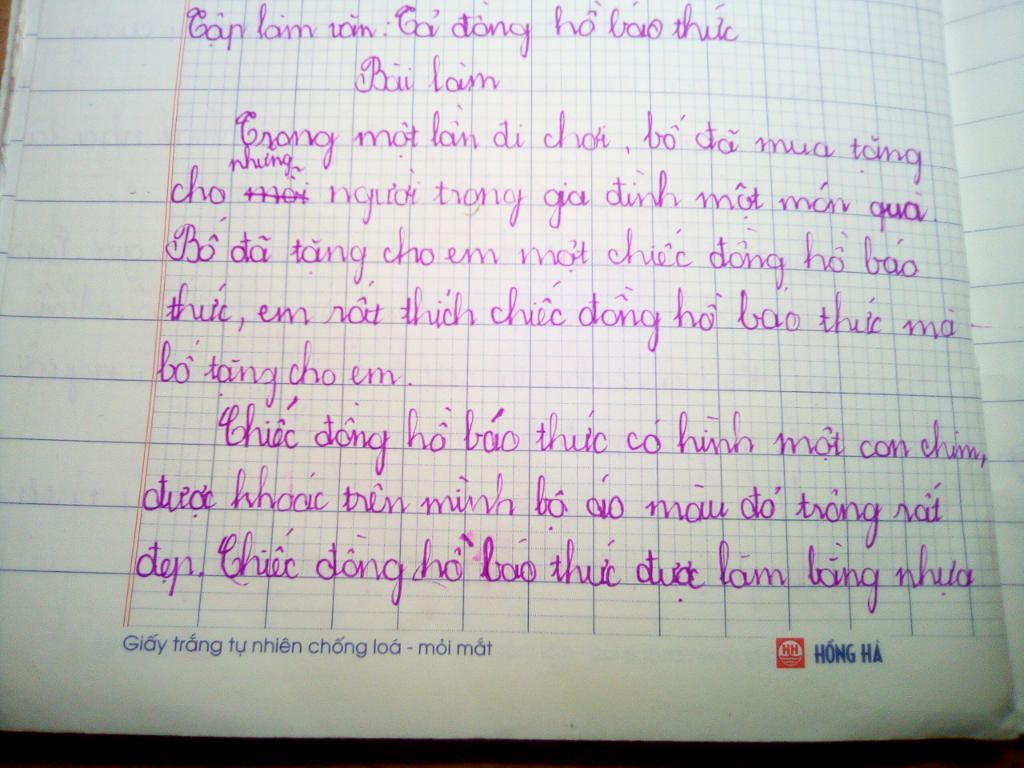 Tập làm văn: Tả đồng hồ báo thức
Bài làm
Trong một lần đi chơi, bố đã mua tặng
những
cho mỗi người trong gia đình một món quà.
Bố đã tặng cho em một chiếc đồng hồ báo
thức, em rất thích chiếc đồng hồ báo thức mà
bố tặng cho em.
Chiếc đồng hồ báo thức có hình một con chim,
được khoác trên mình bộ áo màu đỏ trông rất
đẹp. Chiếc đồng hồ báo thức được làm bằng nhựa
Giấy trắng tự nhiên chống loá - mỏi mắt
HH HỒNG HÀ